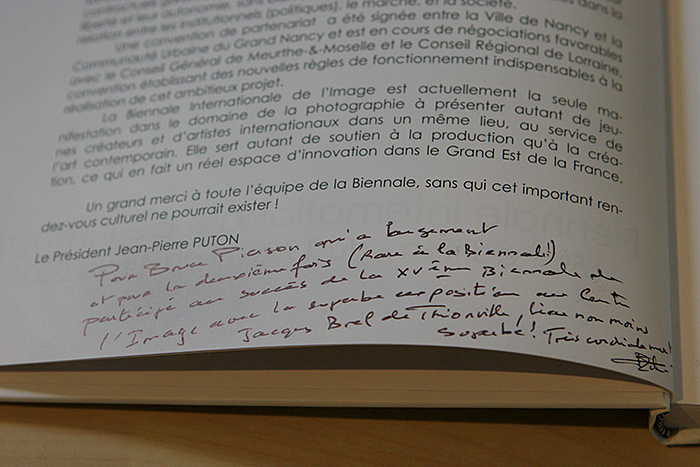 contractuels
relation entre les institutionnels (politiques), le marché, et la société.
Une convention de partenariat a été signée entre la Ville de Nancy et la
Communauté Urbaine du Grand Nancy et est en cours de négociations favorables
avec le Conseil Général de Meurthe-&-Moselle et le Conseil Régional de Lorraine,
convention établissant des nouvelles règles de fonctionnement indispensables à la
réalisation de cet ambitieux projet.
La Biennale Internationale de l'Image est actuellement la seule ma-
nifestation dans le domaine de la photographie à présenter autant de jeu-
nes créateurs et d'artistes internationaux dans un même lieu, au service de
l'art contemporain. Elle sert autant de soutien à la production qu'à la créa-
tion, ce qui en fait un réel espace d'innovation dans le Grand Est de la France.
Un grand merci à toute l'équipe de la Biennale, sans qui cet important ren-
dez-vous culturel ne pourrait exister !
Le Président Jean-Pierre PUTON
Pour Bruce Pierson qui a largement
et pour la deuxième fois (Rare à la Biennale!)
participé au succès de la XVème Biennale de
l'Image avec la superbe exposition au Centre
Jacques Brel de Thionville, lieu non moins
superbe! Très cordialement